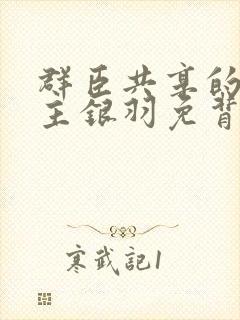 群臣共享的
主银羽免背
寒武記1